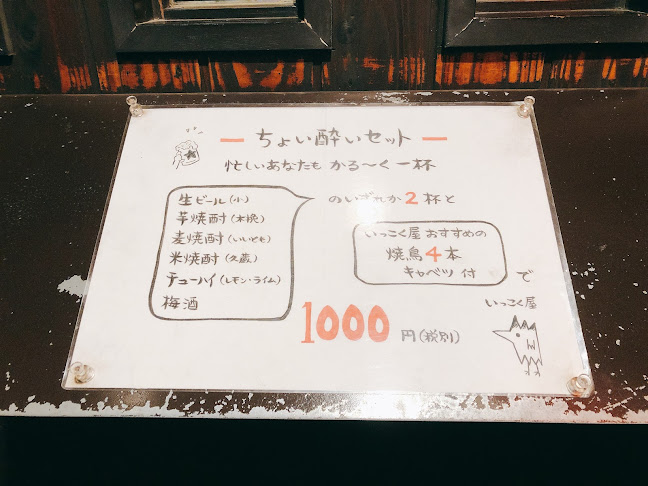 ちょい酔いセット
忙しいあなたも かる〜く一杯
生ビール(小)
芋焼酎(木挽)
麦焼酎(いいとも)
米焼酎(久蔵)
チューハイ(レモン・ライム)
梅酒
のいずれか2杯と
いっこく屋おすすめの
焼鳥4本
キャベツ 付
で
1000円(税別)
いっこく屋